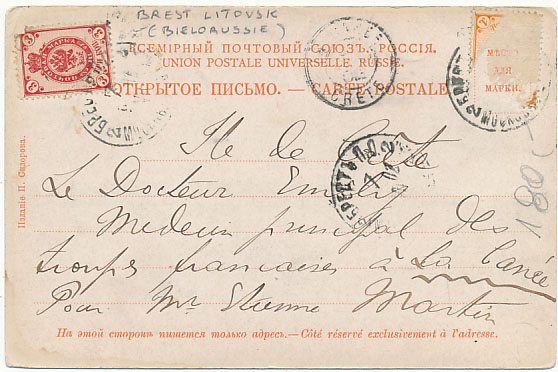 BREST LITOVSK
(BIELORAUSSIE)
ВСЕМІРНЫЙ ПОЧТОВЫЙ СОЮЗЪ. РОССІЯ.
UNION POSTALE UNIVERSELLE. RUSSIE.
ОТКРЫТОЕ ПИСЬМО. — CARTE POSTALE
МѢСТО
ДЛЯ
МАРКИ.
3
3
CRETE
БРЕСТЪ
Ile de Crète
Le Docteur Emily
Medecin principal des
troupes francaises à La Canée
Pour Mr Etienne Martin
180 -
Изданіе П. Сидорова.
На этой сторонѣ пишется только адресъ.—Côté réservé exclusivement à l'adresse.